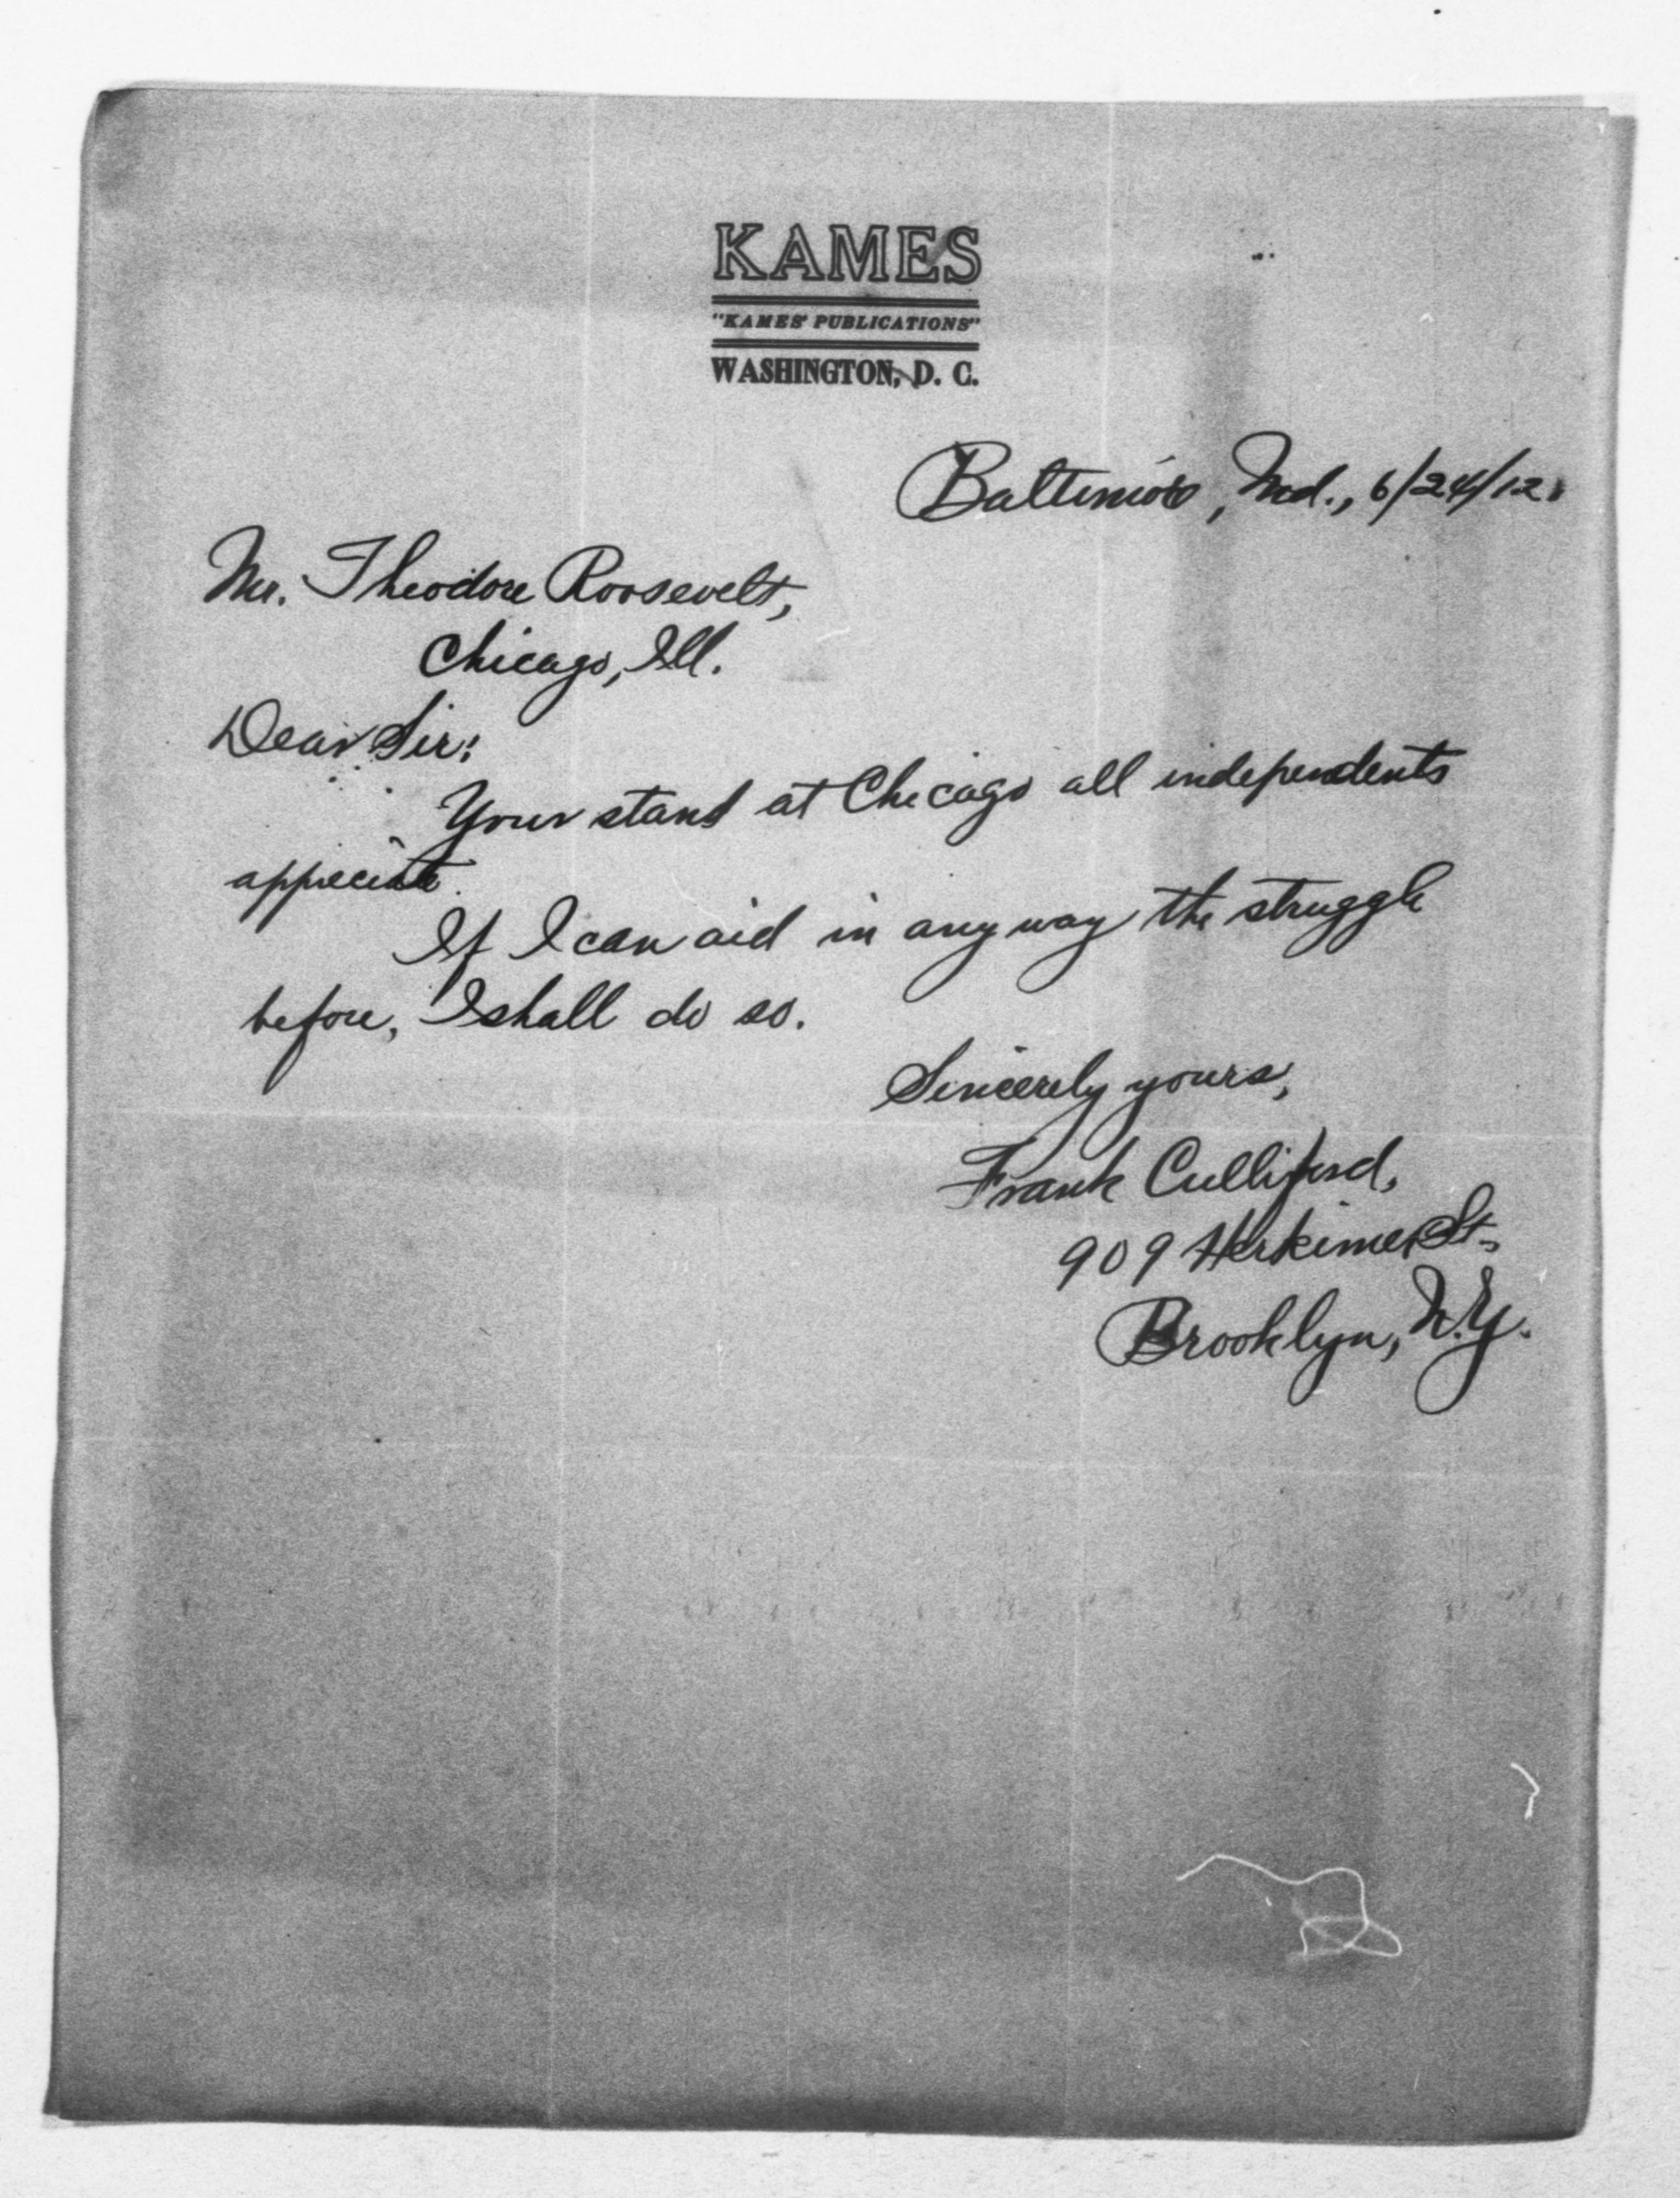 KAMES
"KAMES' PUBLICATIONS"
WASHINGTON, D. C.
Baltimore, Md., 6/24/12.
Mr. Theodore Roosevelt,
Chicago, Ill.
Dear Sir:
Your stand at Chicago all independents
appreciate.
If I can aid in any way the struggle
before, I shall do so.
Sincerely yours,
Frank Culliford,
909 Herkimer St.,
Brooklyn, N.Y.